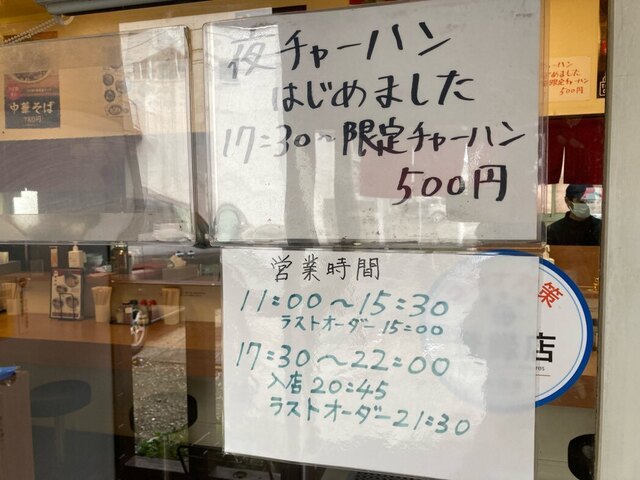 夜チャーハン
はじめました
17:30〜限定チャーハン
500円
営業時間
11:00〜15:30
ラストオーダー15:00
17:30〜22:00
入店20:45
ラストオーダー21:30
中華そば
チャーハン
はじめました
限定チャーハン
500円
策
店